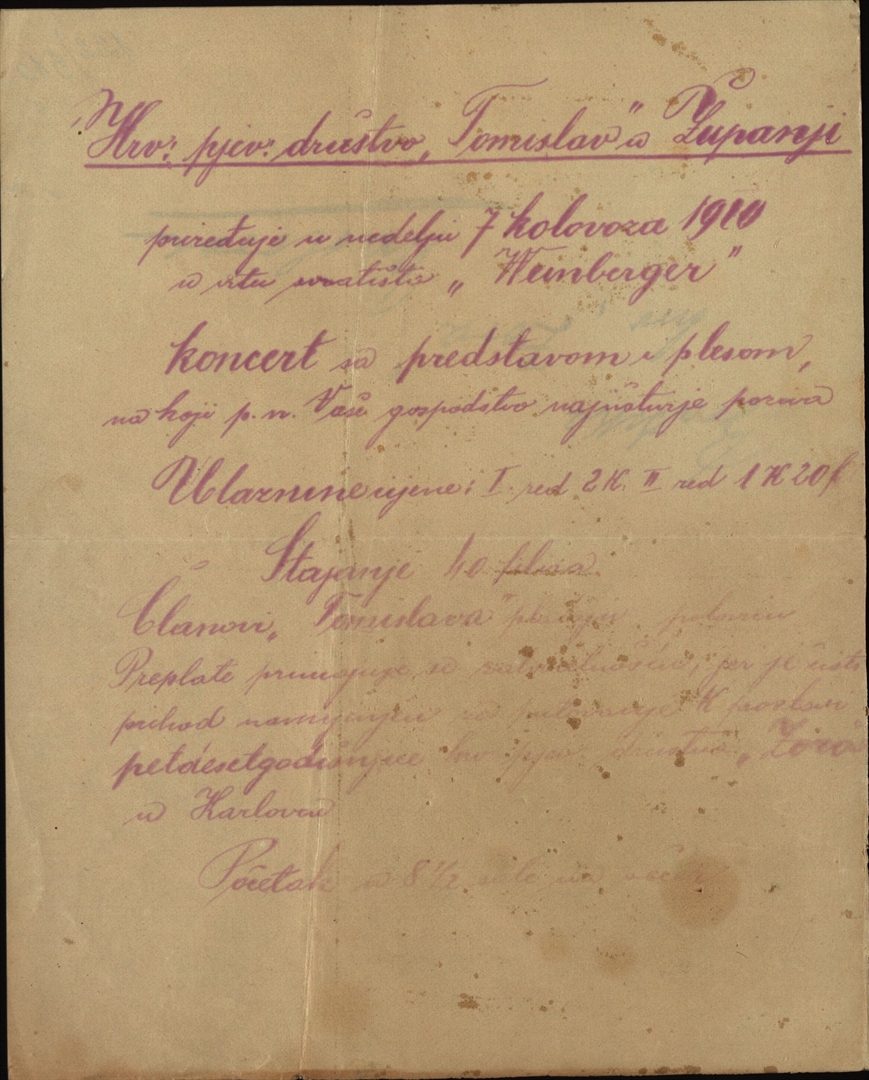 Hrv: pjev: društvo „Tomislav" u Županji
priređuje u nedelju 7 kolovoza 1910
u vrtu svratišta „Weinberger"
koncert sa predstavom i plesom,
na koji p. n. Vaše gospodstvo najučtivje poziva
Ulaznine cijene: I. red 2 K. II red 1 K 20 f
Stajanje 40 filira
Članovi „Tomislava" plaćaju polovicu
Preplate primaju se sa zahvalnošću, jer je čisti
prihod namijenjen za putovanje k proslavi
petdesetgodišnjice hrv pjev društva „Zora"
u Karlovcu
Početak u 8 1/2 sati na večer